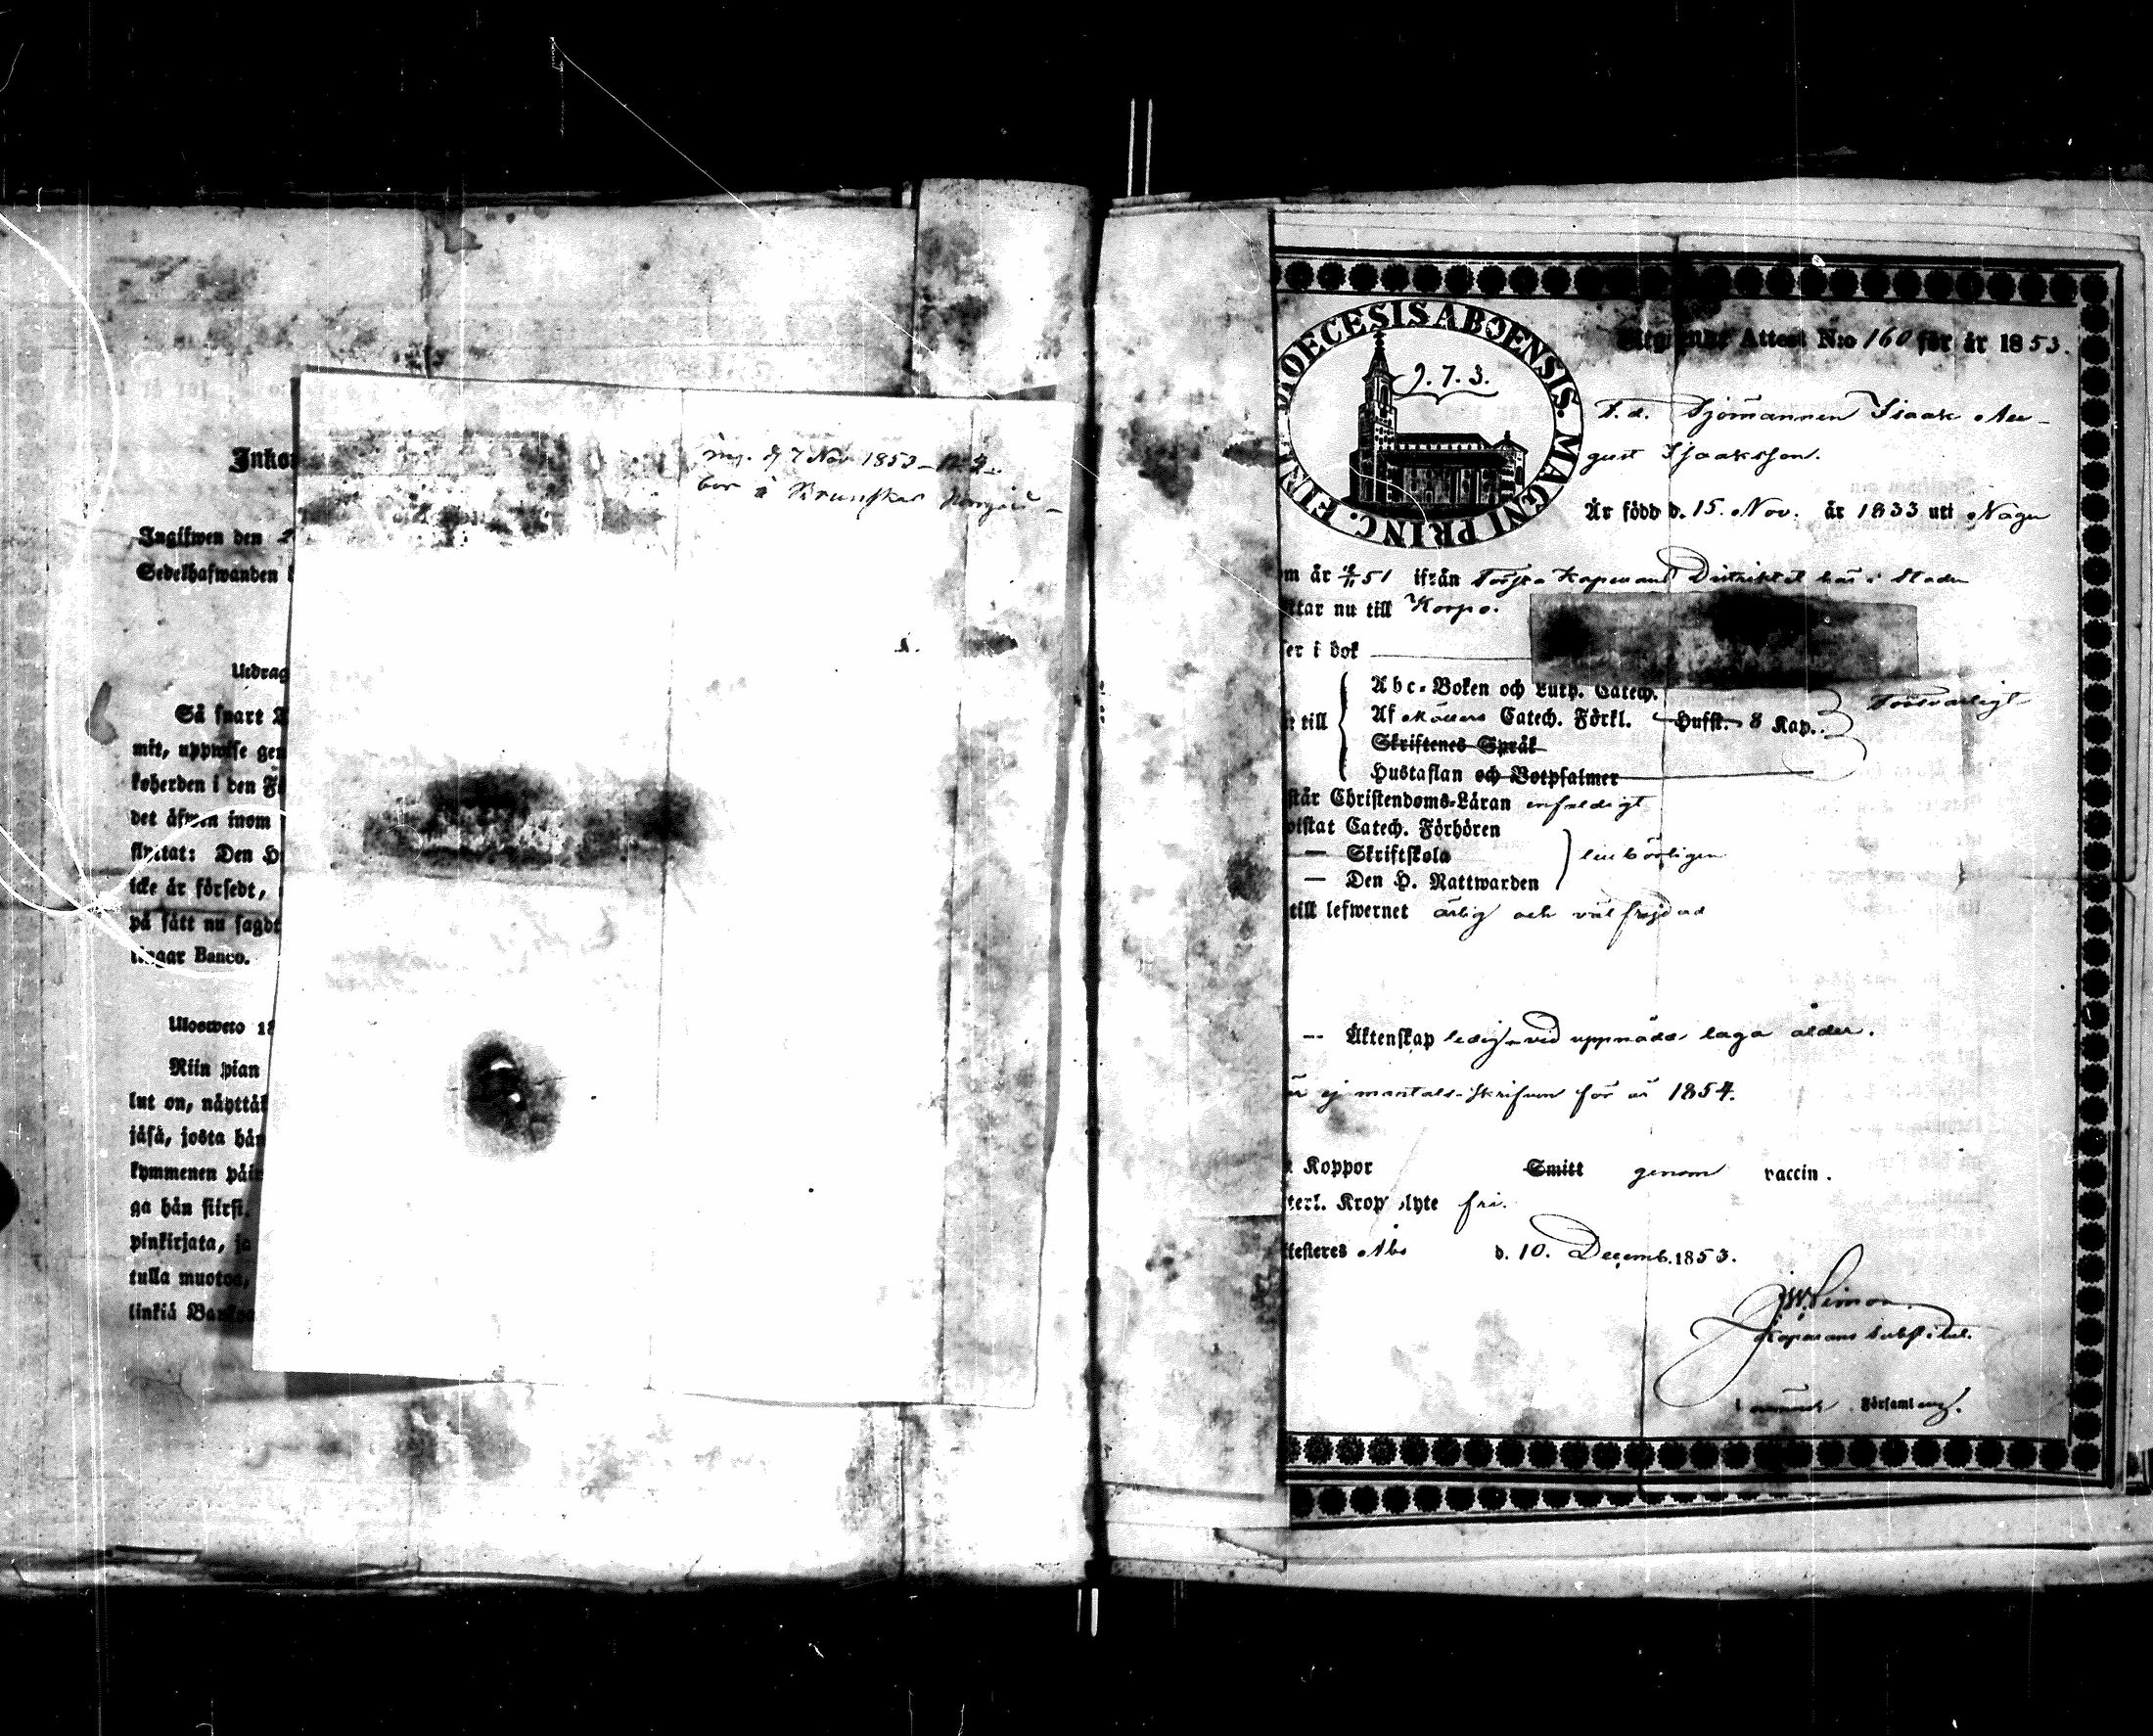 Inko
Ingifwen den 2
Sedelhafwanden
Utdrag
Så snart
mit, uppwise gen
koherden i den F
det äfwen inom
flyttat: Den H
icke är försedt,
på sätt nu sagdt
lingar Banco.
Ulosweto 18
Niin pian
lut on, näyttäk
jäsä, josta hän
kymmenen päiw
ga hän siirsi.
pinkirjata, ja
tulla muotoa,
linkiä Bankos
ing. d 7 Nov 1853
bor å Brunskär
DIOECESIS ABOENSIS. MAGNI PRINC. FINL.
9.7.3.
Utgående Attest N:o 160 för år 1853.
F.d. Sjömannen Isaak Au-
gust Isaaksson.
Är född d. 15. Nov. år 1833 uti Nagu
om år 51 ifrån Första Kaplans Distriktet här i Staden
ttar nu till Korpo.
er i bok
Abc-Boken och Luth. Catech.
till Af Catech. Förkl. Hufst. 8 Kap. Försvarligt
Skriftenes Språk
Hustaflan och Botpsalmer
står Christendoms-Läran enfaldigt
wistat Catech. Förhören
— Skriftskola behörligen
— Den H. Nattwarden
till lefwernet ärlig och välfrejdad
— Äktenskap ledig vid uppnådd laga ålder.
är ej mantals-skrifven för år 1854.
Koppor Smitt genom vaccin.
terl. Kropslyte fri.
ttesteres Åbo d. 10. Decemb. 1853.
JW Simon
Kaplans Substitut.
i Församling.